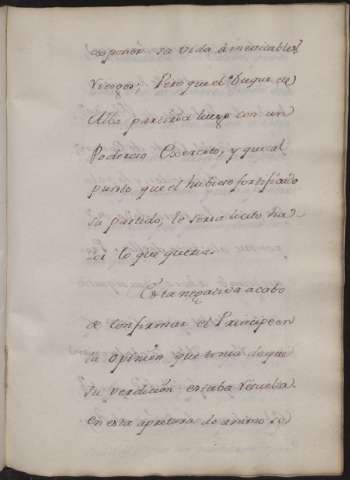 exponer su vida á inevitables
riesgos; Pero que el Duque de
Alba partiria luego con un
Poderoso Exercito, y que al
punto que el hubiese fortificado
su partido, le seria licito ha-
zer lo que queria.
Esta negativa acabo
de confirmar el Principe en
la opinion que tenia de que
su perdicion estaba resuelta.
en esta apretura de animo se